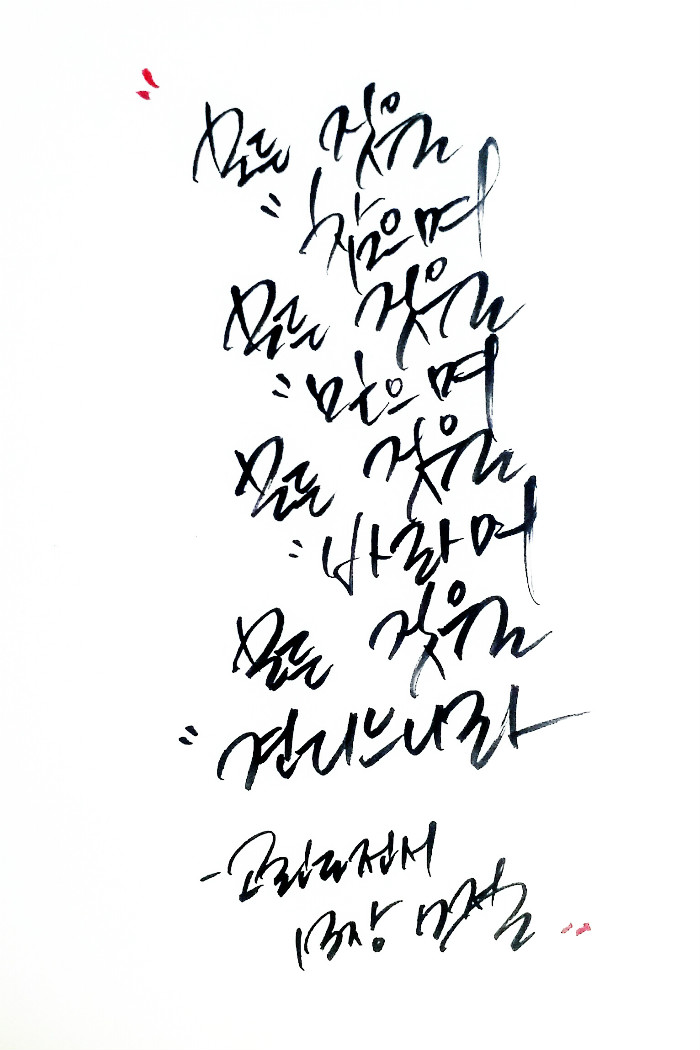 모든 것을
참으며
모든 것을
믿으며
모든 것을
바라며
모든 것을
견디느니라
- 고린도전서
13장 7절